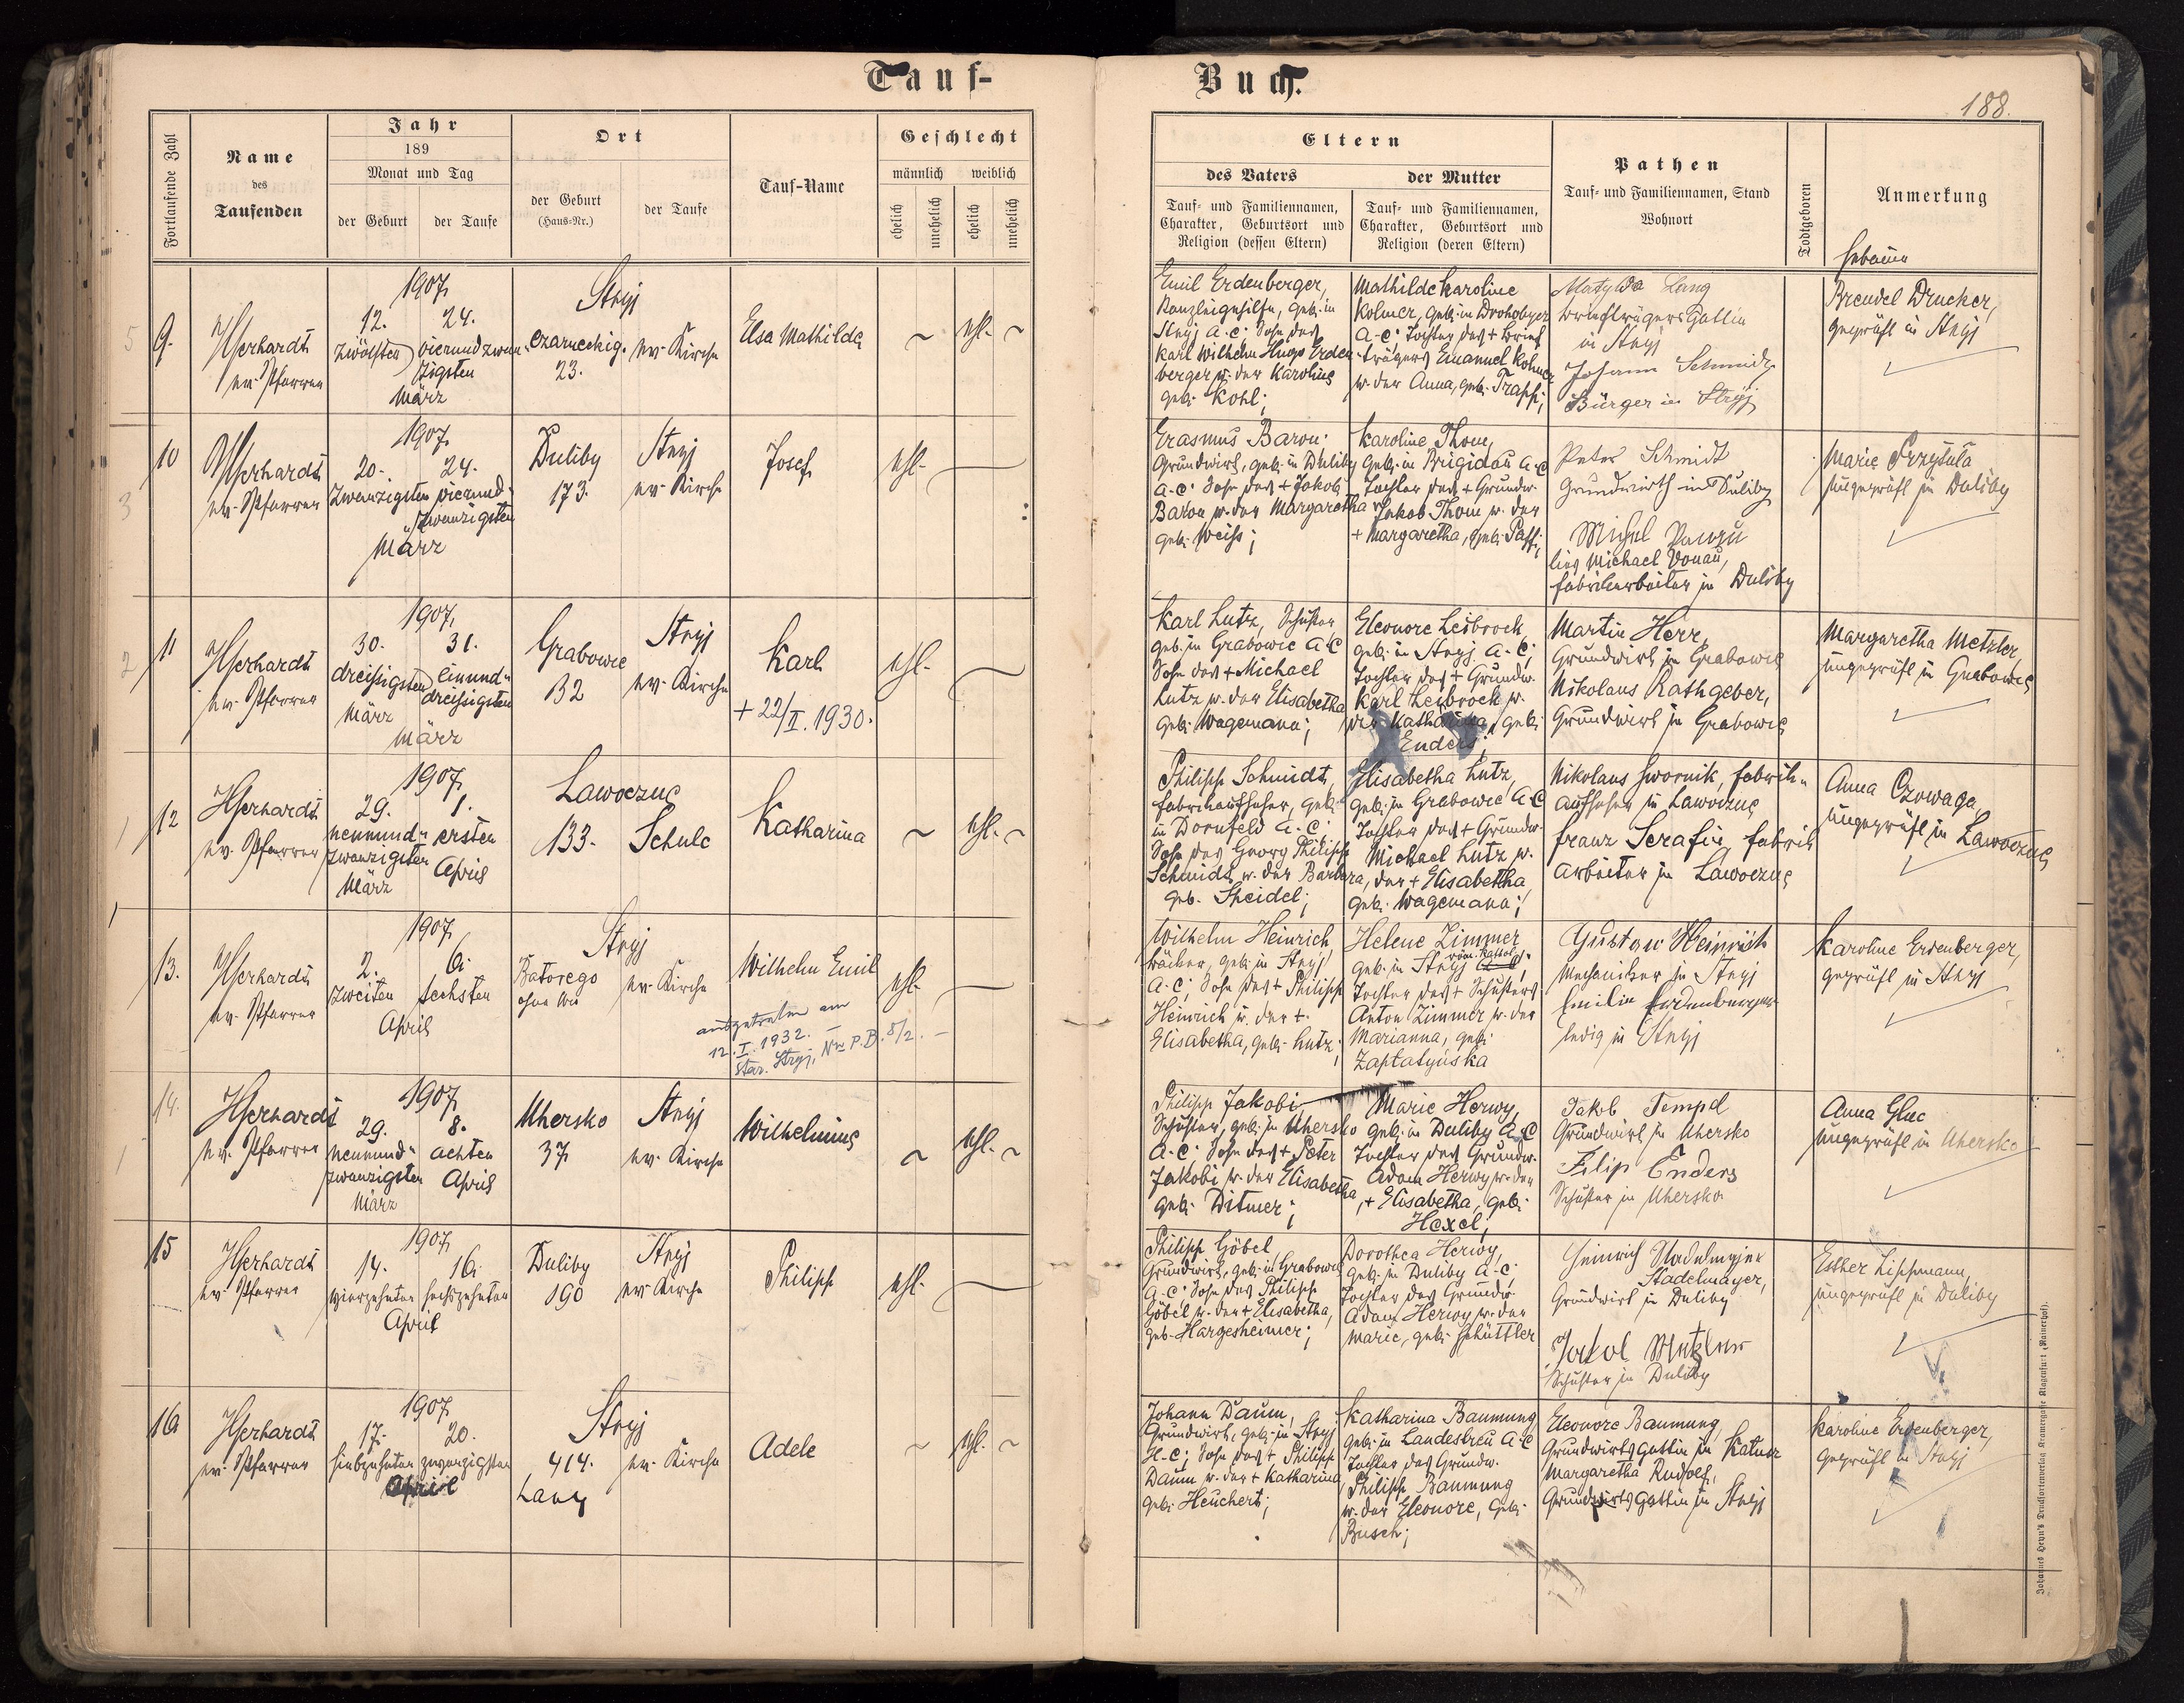 Tauf-
Buch.
188.
Fortlaufende Zahl
Name
des
Taufenden
Jahr
189
Monat und Tag
der Geburt
der Taufe
Ort
der Geburt
(Haus-Nr.)
der Taufe
Tauf-Name
Geschlecht
männlich
weiblich
ehelich
unehelich
ehelich
unehelich
Eltern
des Vaters
Tauf- und Familiennamen,
Charakter, Geburtsort und
Religion (dessen Eltern)
der Mutter
Tauf- und Familiennamen,
Charakter, Geburtsort und
Religion (deren Eltern)
Pathen
Tauf- und Familiennamen, Stand
Wohnort
Todtgeboren
Anmerkung
Hebamme
5
9.
ev. Pfarrer
1907
12.
zwölften
24.
vierundzwan-
zigsten
März
Stryj
Czarneckig.
23.
ev. Kirche
Elsa Mathilde
ehl.
Emil Erdenberger,
Kanzleigehilfe, geb. in
Stryj A.C; Sohn des
Karl Wilhelm Hugo Erden
berger u. der Karoline
geb. Kohl;
Mathilde Karoline
Kolmer, geb. in Drohobycz
A.C; Tochter des + Brief
trägers Emanuel Kolmer
u. der Anna, geb. Trapp;
Matylda Lang
Briefträgers Gattin
in Stryj
Johann Schmidt
Bürger in Stryj
Breudel Drucker,
geprüft in Stryj
3
10
ev. Pfarrer
1907
20.
zwanzigsten
24.
vierund-
zwanzigsten
März
Duliby
173.
Stryj
ev. Kirche
Josef
ehl.
Erasmus Baron
Grundwirt, geb. in Duliby
A.C; Sohn des + Jakob
Baron u. der Margaretha
geb. Weiss;
Karoline Thom,
geb. in Brigidau A.C
Tochter des + Grundw.
Jakob Thom u. der
+ Margaretha, geb. Paff;
Peter Schmidt
Grundwirth in Duliby
lies Michael Donau,
Fabrikarbeiter in Duliby
Marie Przytula
ungeprüft in Duliby
2
11
ev. Pfarrer
1907
30.
dreissigsten
März
31.
einund-
dreissigsten
März
Grabowce
132
Stryj
ev. Kirche
Karl
+ 22/II. 1930.
ehl.
Karl Lutz, Schuster
geb. in Grabowce A.C
Sohn des + Michael
Lutz u. der Elisabetha
geb. Wagemann;
Eleonore Leibrock
geb. in Stryj A.C;
Tochter des + Grundw.
Karl Leibrock u.
der Katharina, geb.
Enders;
Martin Herr,
Grundwirt in Grabowce
Nikolaus Rathgeber,
Grundwirt in Grabowce
Margaretha Metzler
ungeprüft in Grabowce
1
12
ev. Pfarrer
1907
29.
neunund-
zwanzigsten
März
1.
ersten
April
Lawoczne
133.
Schule
Katharina
ehl.
Philipp Schmidt,
Fabrikaufseher, geb.
in Dornfeld A.C;
Sohn des Georg Philipp
Schmidt u. der Barbara,
geb. Sheidel;
Elisabetha Lutz,
geb. in Grabowce A.C
Tochter des + Grundw.
Michael Lutz u.
der + Elisabetha
geb. Wagemann;
Nikolaus Swornik, Fabrik-
aufseher in Lawoczne
Franz Serafin, Fabrik
arbeiter in Lawoczne
Anna Czowaga
ungeprüft in Lawoczne
13.
ev. Pfarrer
1907
2.
zweiten
6.
sechsten
April
Stryj
Batorego
ohne Nr
ev. Kirche
Wilhelm Emil
ausgetreten am
12.I.1932.
Star. Stryj, Nr P.B. 5/2. —
ehl.
Wilhelm Heinrich,
Bäcker, geb. in Stryj
A.C; Sohn des + Philipp
Heinrich u. der +
Elisabetha, geb. Lutz;
Helene Zimmer
röm. kathol.
geb. in Stryj
Tochter des + Schusters
Anton Zimmer u. der
Marianna, geb.
Gustav Heinrich
Mechaniker in Stryj
Emilie Erdenberger
ledig in Stryj
Karoline Erdenberger,
geprüft in Stryj
14.
1
ev. Pfarrer
1907
29.
neunund-
zwanzigsten
März
8.
achten
April
Uhersko
37
Stryj
ev. Kirche
Wilhelmine
ehl.
Philipp Jakobi
Schuster, geb. in Uhersko
A.C; Sohn des + Peter
Jakobi u. der Elisabetha
geb. Ditmer;
Marie Herwy,
geb. in Duliby A.C
Tochter des Grundw.
Adam Herwy u. der
+ Elisabetha, geb.
Hexel;
Jakob Tempel
Grundwirt in Uhersko
Filip Enders
Schuster in Uhersko
Anna Gluc
ungeprüft in Uhersko
15
ev. Pfarrer
1907
14.
vierzehnten
16.
sechszehnten
April
Duliby
190
Stryj
ev. Kirche
Philipp
ehl.
Philipp Göbel
Grundwirt, geb. in Grabowce
A.C; Sohn des Philipp
Göbel u. der + Elisabetha,
geb. Hargesheimer;
Dorothea Herwy,
geb. in Duliby A.C;
Tochter des Grundw.
Adam Herwy u. der
Marie, geb. Schüttler
Heinrich Stadelmajer
Stadelmayer,
Grundwirt in Duliby
Jakob Metzler
Schuster in Duliby
Esther Lippmann,
ungeprüft in Duliby
16
ev. Pfarrer
1907
17.
siebzehnten
20.
zwanzigsten
April
Stryj
414.
Lany
ev. Kirche
Adele
ehl.
Johann Daum,
Grundwirt, geb. in Stryj
H.C; Sohn des + Philipp
Daum u. der + Katharina
geb. Heuchert;
Katharina Baumung
geb. in Landestreu A.C
Tochter des Grundw.
Philipp Baumung
u. der Eleonore, geb.
Busch;
Eleonore Baumung,
Grundwirtsgattin in Katusz
Margaretha Rudolf,
Grundwirtsgattin in Stryj
Karoline Erdenberger,
geprüft in Stryj